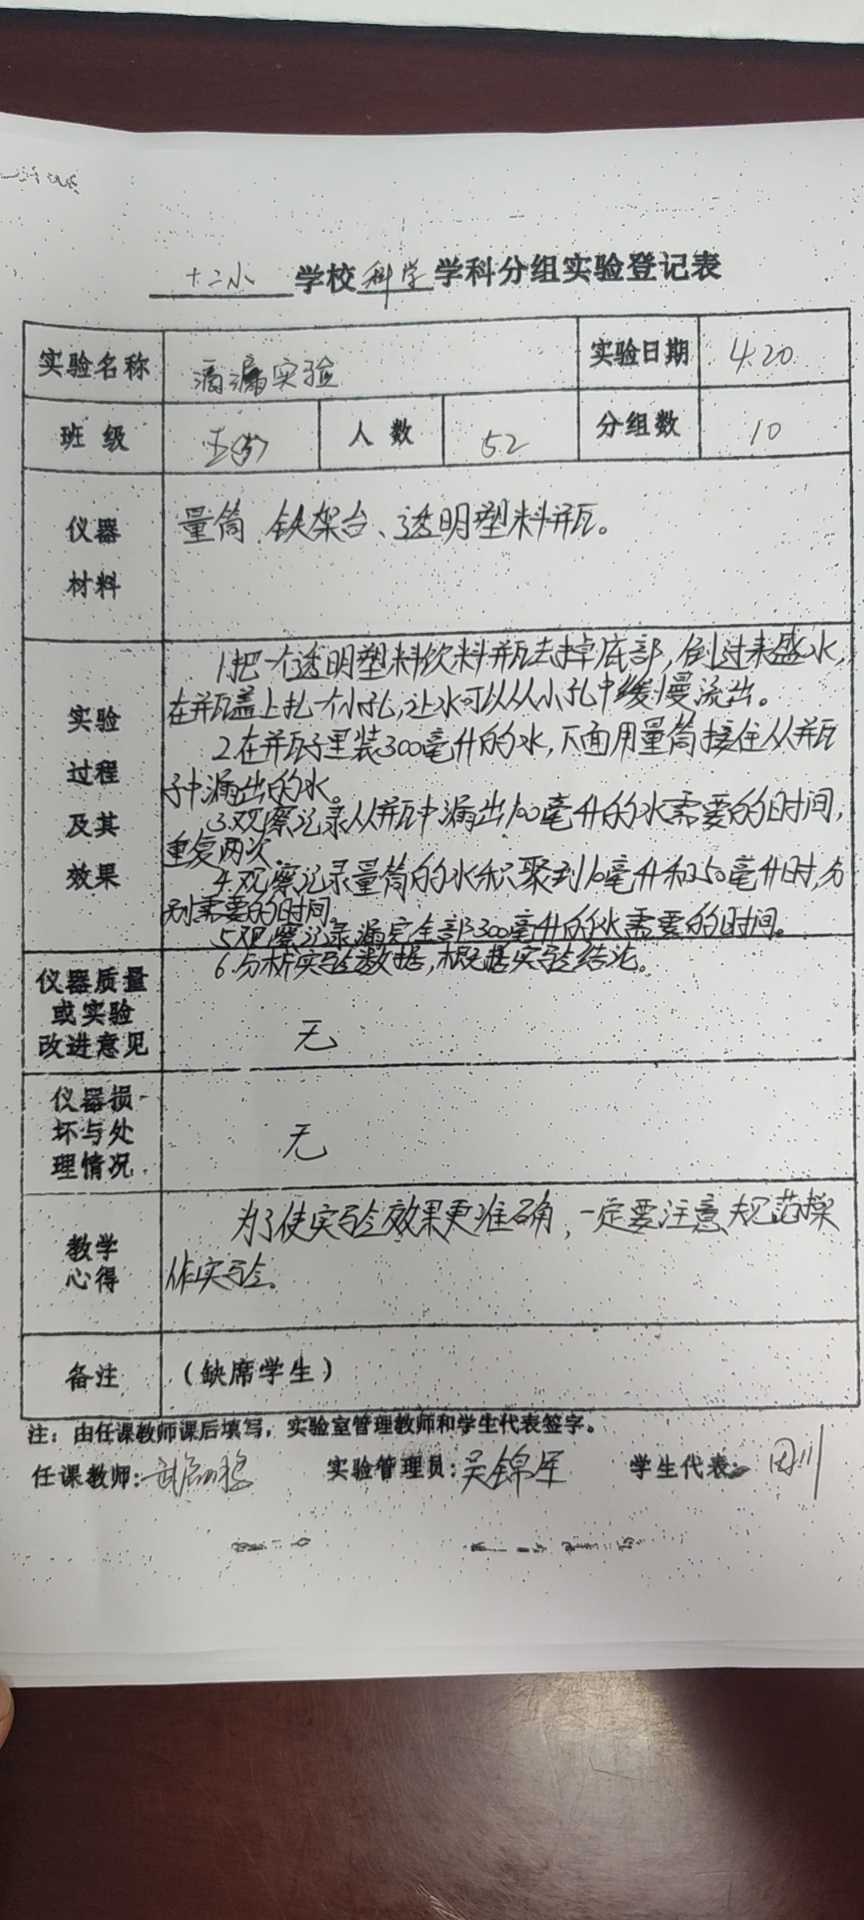 十二小 学校 科学 学科分组实验登记表
实验名称 滴漏实验 实验日期 4.20
班 级 人 数 52 分组数 10
仪器 材料 量筒 铁架台、透明塑料瓶。
实验 过程 及其 效果
1.把一个透明塑料饮料瓶去掉底部,倒过来盛水,
在瓶盖上扎个小孔,让水可以从小孔中缓慢流出。
2.在瓶子里装300毫升的水,下面用量筒接住从瓶
子中漏出的水。
3.观察记录从瓶中漏出100毫升的水需要的时间,
重复两次。
4.观察记录量筒的水积聚到10毫升和250毫升时,分
别需要的时间。
5.观察记录漏完全部300毫升的水需要的时间。
6.分析实验数据,根据实验结论。
仪器质量
或实验
改进意见
无
仪器损
坏与处
理情况
无
教学
心得
为了使实验效果更准确,一定要注意规范操
作实验。
备注 (缺席学生)
注:由任课教师课后填写,实验室管理教师和学生代表签字。
任课教师: 实验管理员:吴锦军 学生代表: 田川